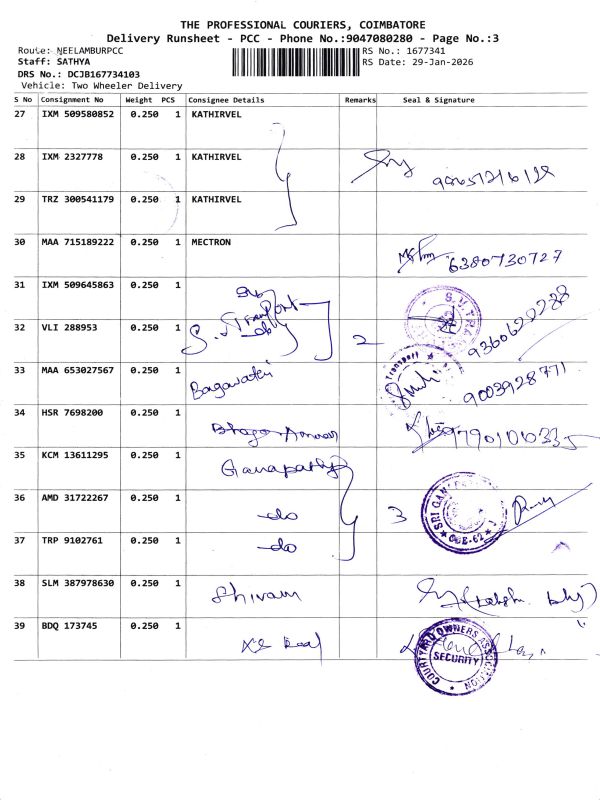 THE PROFESSIONAL COURIERS, COIMBATORE
Delivery Runsheet - PCC - Phone No.:9047080280 - Page No.:3
Route: NEELAMBURPCC
RS No.: 1677341
Staff: SATHYA
RS Date: 29-Jan-2026
DRS No.: DCJB167734103
Vehicle: Two Wheeler Delivery
S No Consignment No Weight PCS Consignee Details Remarks Seal & Signature
27 IXM 509580852 0.250 1 KATHIRVEL
28 IXM 2327778 0.250 1 KATHIRVEL
29 TRZ 300541179 0.250 1 KATHIRVEL
30 MAA 715189222 0.250 1 MECTRON
6380730727
31 IXM 509645863 0.250 1
S.V.TRA
32 VLI 288953 0.250 1 S.V. Transport do 2
9360620288
33 MAA 653027567 0.250 1 Bagawathi
9003928771
34 HSR 7698200 0.250 1
35 KCM 13611295 0.250 1 Ganapathy
36 AMD 31722267 0.250 1 do 3
SRI GAN
CBE-62
37 TRP 9102761 0.250 1 do
38 SLM 387978630 0.250 1 Shivam
39 BDQ 173745 0.250 1
COURTYARD OWNERS ASSOCIATION
SECURITY